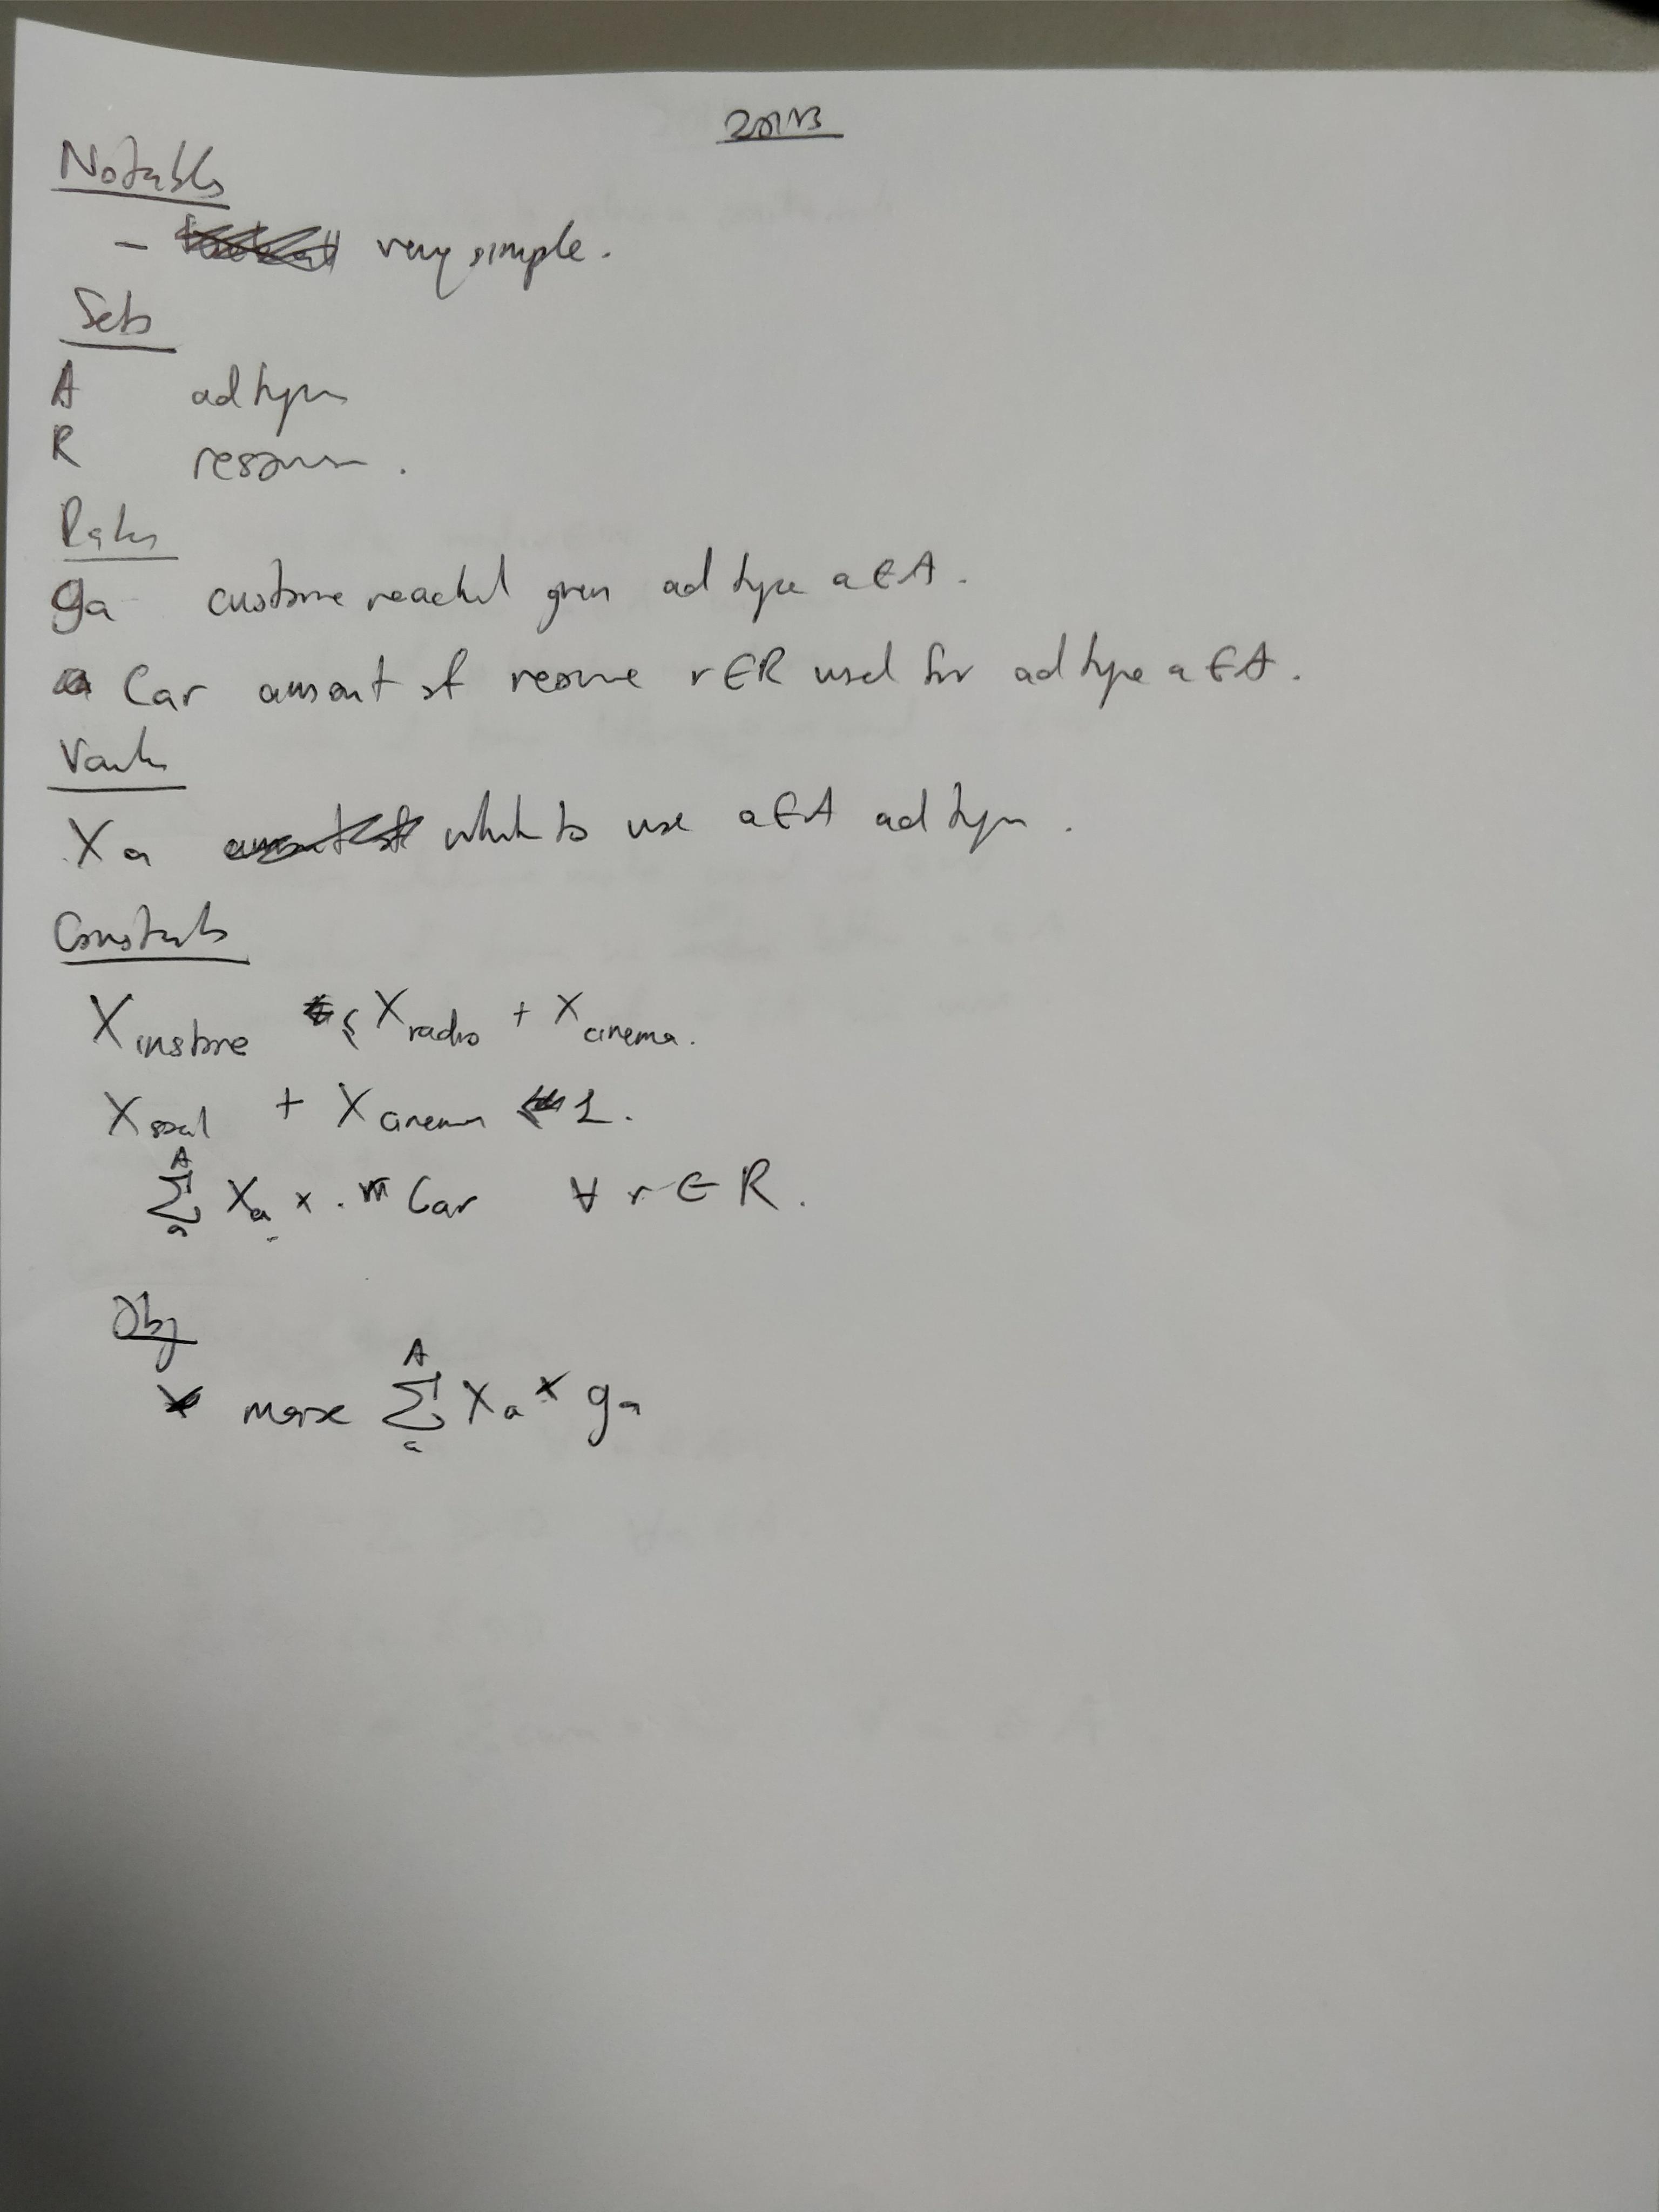 Notables
- very simple.
Sets
A ad types
R resources.
ga customer reached given ad type a∈A.
Car amount of resource r∈R used for ad type a∈A.
Xa whether to use a∈A ad type.
Constraints
Xinstore ≤ Xradio + Xcinema.
Xsocial + Xcinema 1.
∑ᴬₐ Xa × Car ∀ r∈R.
Obj
max ∑ᴬₐ Xa × ga